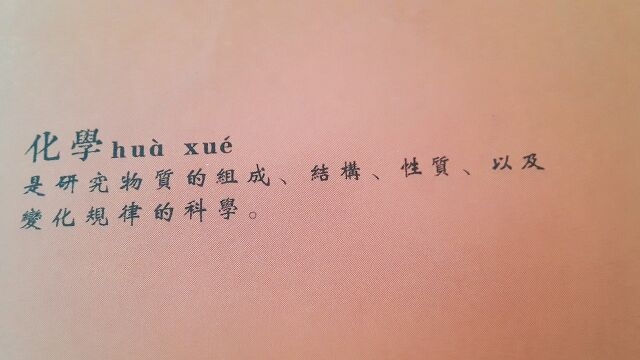 化學 huà xué
是研究物質的組成、結構、性質、以及
變化規律的科學。